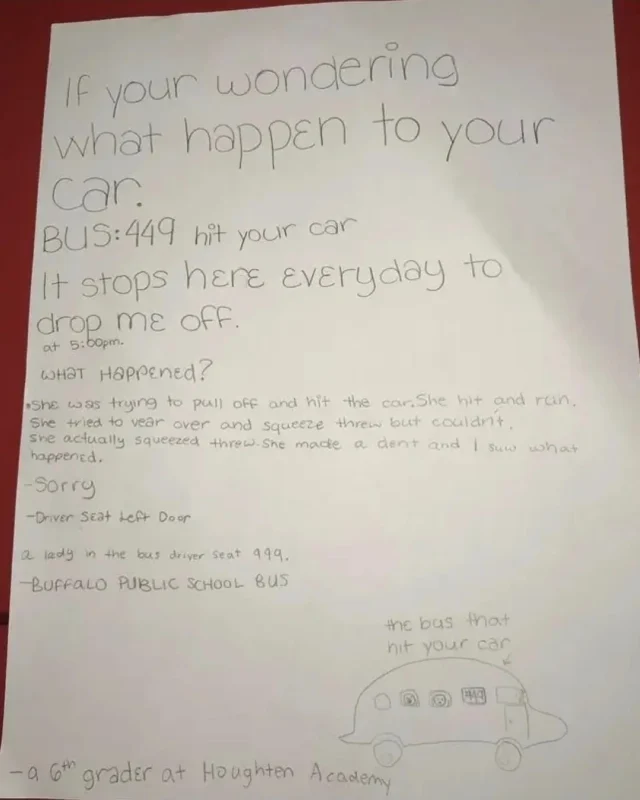 If your wondering
what happen to your
car.
BUS:449 hit your car
It stops here everyday to
drop me off.
at 5:00pm.
WHAT HAPPENED?
•She was trying to pull off and hit the car. She hit and run.
She tried to vear over and squeeze threw but couldn't.
she actually squeezed threw. She made a dent and I suw what
happened.
-Sorry
-Driver Seat Left Door
a lady in the bus driver seat 449.
-BUFFALO PUBLIC SCHOOL BUS
the bus that
hit your car
449
-a 6th grader at Houghten Academy